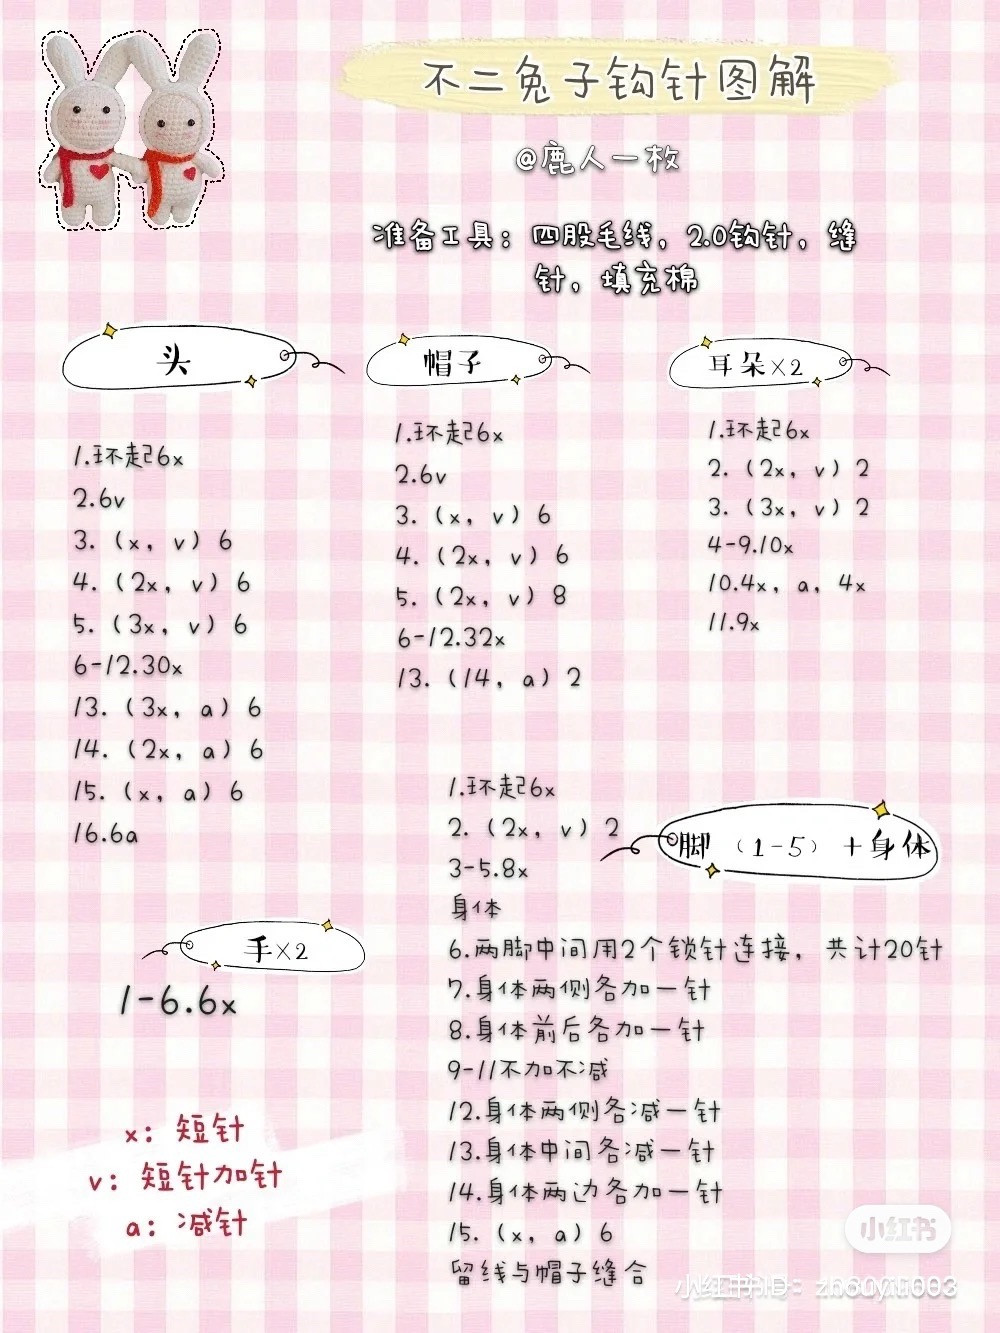 不二兔子钩针图解
@鹿人一枚
准备工具：四股毛线，2.0钩针，缝
针，填充棉
头
1.环起6x
2.6v
3.（x，v）6
4.（2x，v）6
5.（3x，v）6
6-12.30x
13.（3x，a）6
14.（2x，a）6
15.（x，a）6
16.6a
帽子
1.环起6x
2.6v
3.（x，v）6
4.（2x，v）6
5.（2x，v）8
6-12.32x
13.（14，a）2
耳朵×2
1.环起6x
2.（2x，v）2
3.（3x，v）2
4-9.10x
10.4x，a，4x
11.9x
手×2
1-6.6x
脚（1-5）+身体
1.环起6x
2.（2x，v）2
3-5.8x
身体
6.两脚中间用2个锁针连接，共计20针
7.身体两侧各加一针
8.身体前后各加一针
9-11不加不减
12.身体两侧各减一针
13.身体中间各减一针
14.身体两边各加一针
15.（x，a）6
留线与帽子缝合
x：短针
v：短针加针
a：减针
小红书
小红书ID：